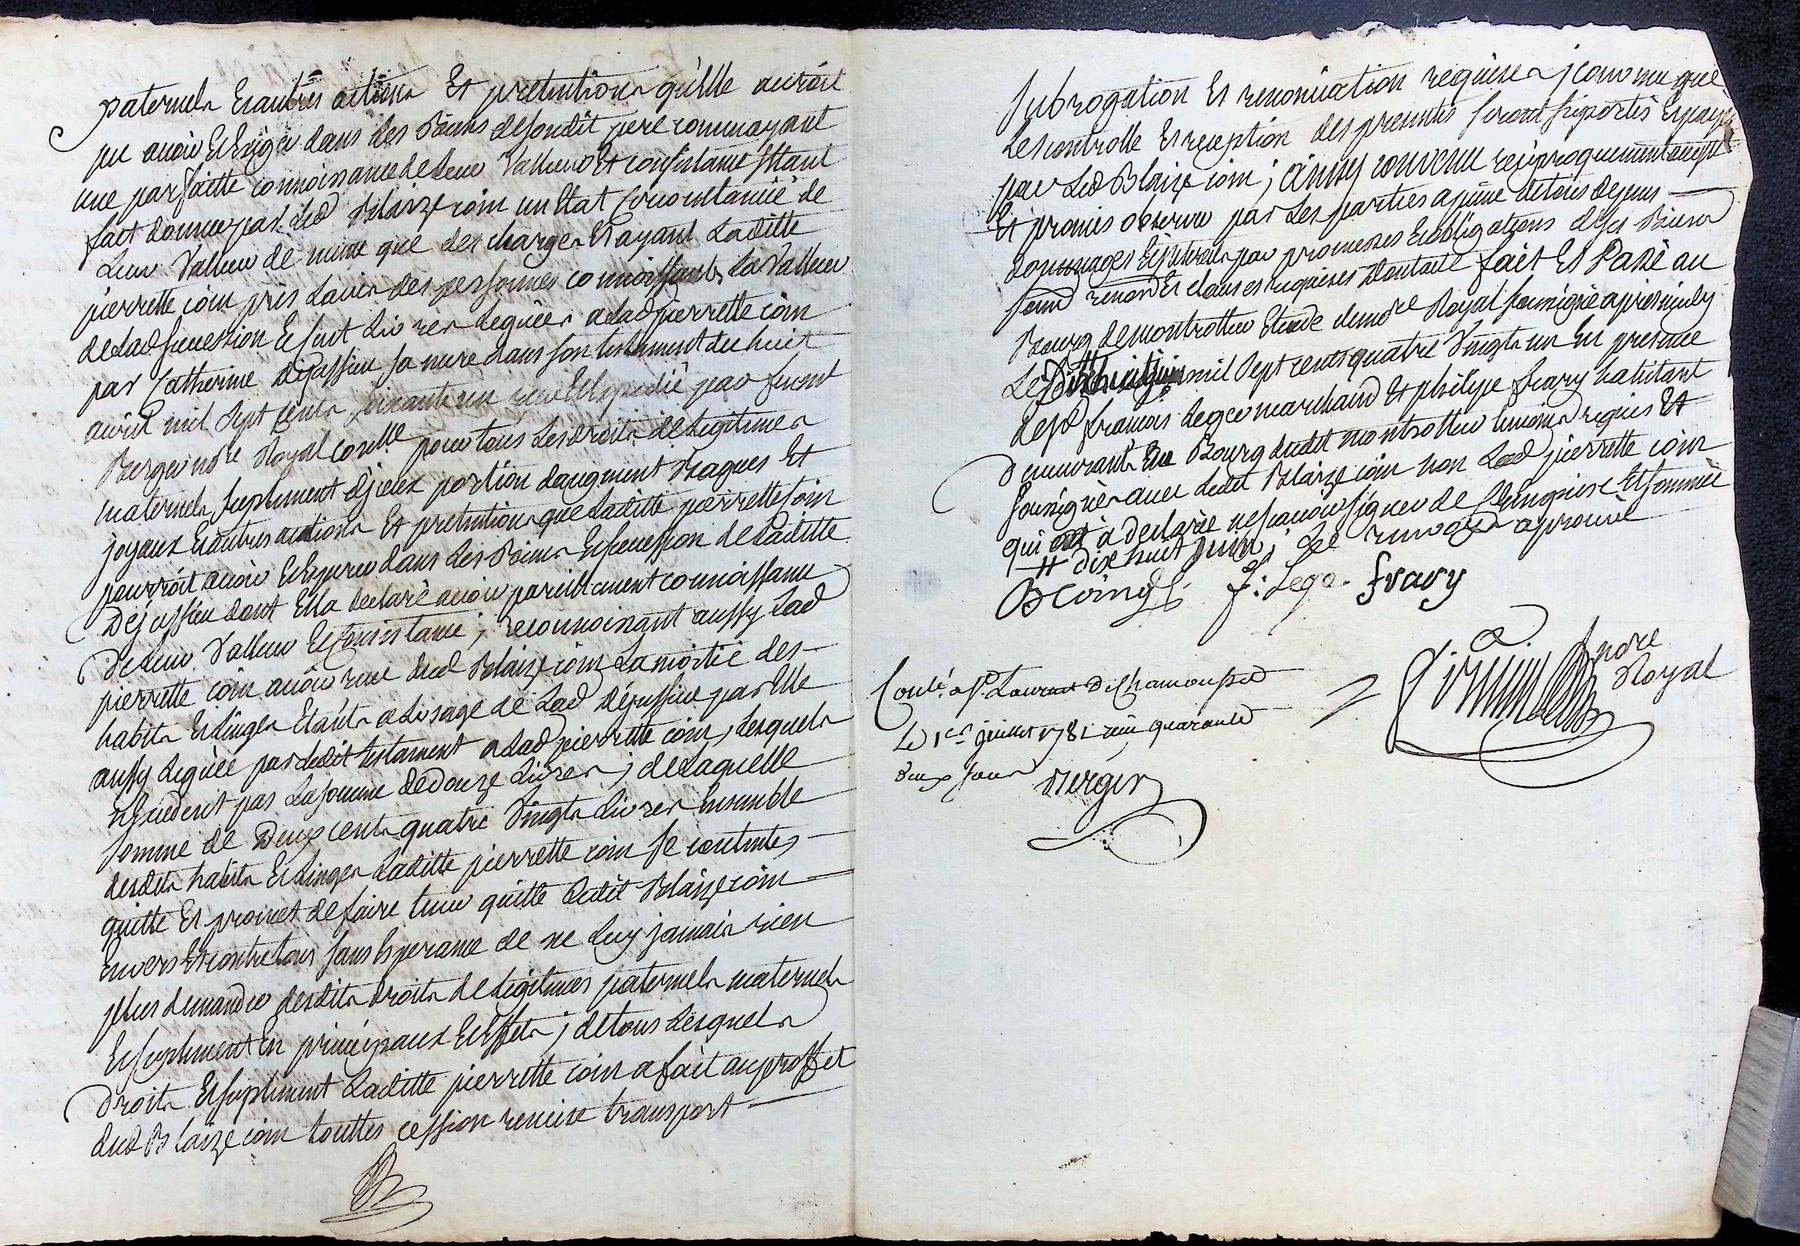 paternels Et autres actions Et pretentions qu'elle auroit
pu avoir Et Exiger dans les Biens desondit pere comme ayant
une parfaitte connoissance de Leur Valleur Et consistance s'Etant
fait donner par led Blaize coin un Etat circonstancié de
Leur Valleur de même que des charges Et ayant Laditte
pierrette coin pris Lavis des personnes connoissants La Valleur
de Lad succession Et huit Livres leguées a Lad pierrette coin
par Catherine Dejussieu sa mere dans son testament du huit
avril mil Sept cents soixante un reçu Et Expedié par feu
Berger nore Royal pour tous Les droits de Legitimes
maternels supliment d'jceux portion daugment Bagues Et
joyaux Et autres actions Et pretentions que Laditte pierrette Coin
pourroit avoir Et Esperer dans Les Biens Et succession de Laditte
Dejussieu dont Ella declaré avoir pareillement connoissance
De Leur Valleur Et Consistance ; reconnoissant aussy Lad
pierrette coin avoir reçu dud Blaize coin La moitié des
habits Et Linges Etants a Lusage de Lad Dejussieu par Elle
aussy Leguée par Ledit testament a Lad pierrette coin, Lesquels
n'Excedent pas La somme de Douze Livres ; de Laquelle
somme de Deux cents quatre Vingts Livres Ensemble
desdits habits Et Linges Laditte pierrette coin Se contente,
quitte Et promet de faire tenir quitte Ledit Blaize coin
Envers Et contre tous sans Esperance de ne Luy jamais rien
plus demander desdits droits de Legitimes paternels maternels
Et supliment En principaux Et Effets ; de tous Lesquels
Droits Et supliment Laditte pierrette coin a fait au proffit
dud Blaize coin touttes cession remise transport
Subrogation Et renonciation requises ; convenu que
Les controlle Et reception des presentes seront suportés Et payés
par Led Blaize coin ; ainsy convenu reciproquement accepté
Et promis observer par Les parties a peine de tous depens
domages Et jnterets par promesses Et obligations de Biens
soumd renond Et clauses requises Dont acte fait Et Passé au
Bourg de montrottier Etude du nore Royal soussigné apres midy
Le # mil Sept cents quatre Vingts un En presence
de sr francois Lego marchand Et philipe fravy habitant
Demeurants au Bourg dudit montrottier temoins requis Et
soussignés avec Ledit Blaize coin non Lad pierrette coin
qui a declaré ne scavoir signer de Ce Enquise Et sommée
# dix huit juin, Le renvoy aprouvé
B Coing f: Lego fravy
nore
Royal
Conlé a St Laurent de Chamousset
Le 1er juillet 1781 reçu quarante
deux sous Berger